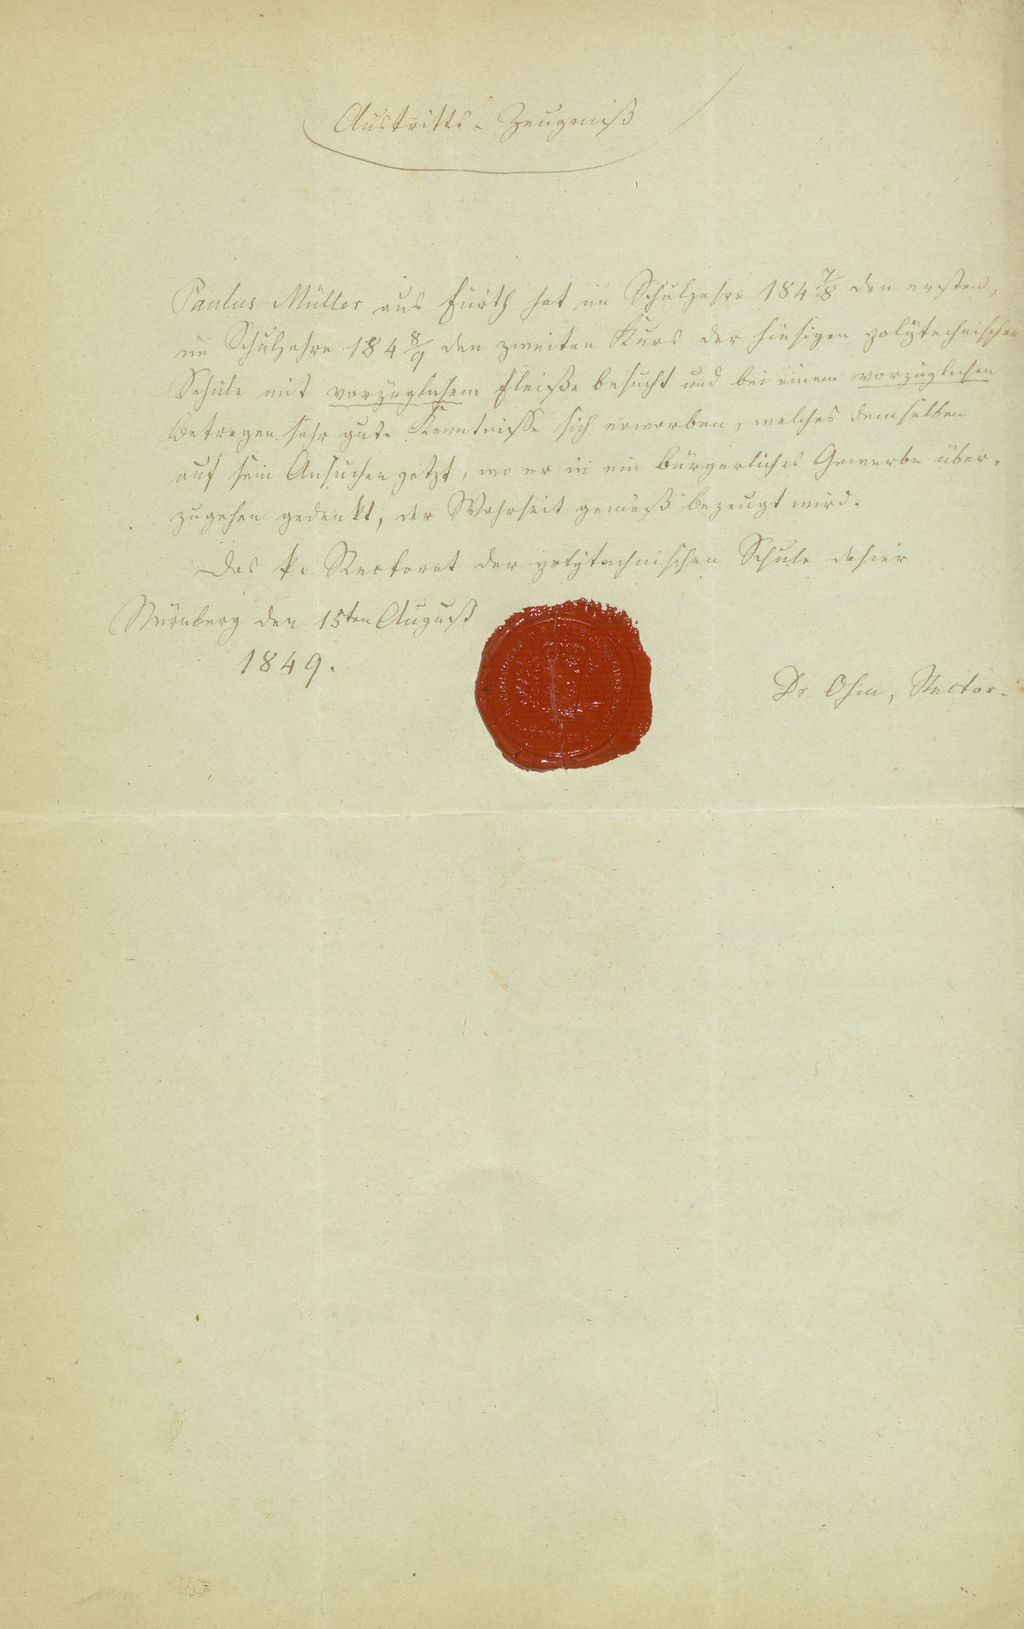 Austritts-Zeugniß
Paulus Müller aus Fürth hat im Schuljahre 184 7/8 den ersten,
im Schuljahre 184 8/9 den zweiten Kurs der hiesigen polytechnischen
Schule mit vorzüglichem Fleiße besucht und bei einem vorzüglichen
Betragen sehr gute Kenntnisse sich erworben, welches demselben
auf sein Ansuchen jetzt, wo er in ein bürgerliches Gewerbe über-
zugehen gedenkt, der Wahrheit gemäß bezeugt wird.
Das k. Rectorat der polytechnischen Schule dahier
Nürnberg den 15ten August
1849.
Dr. Ohm, Rector.